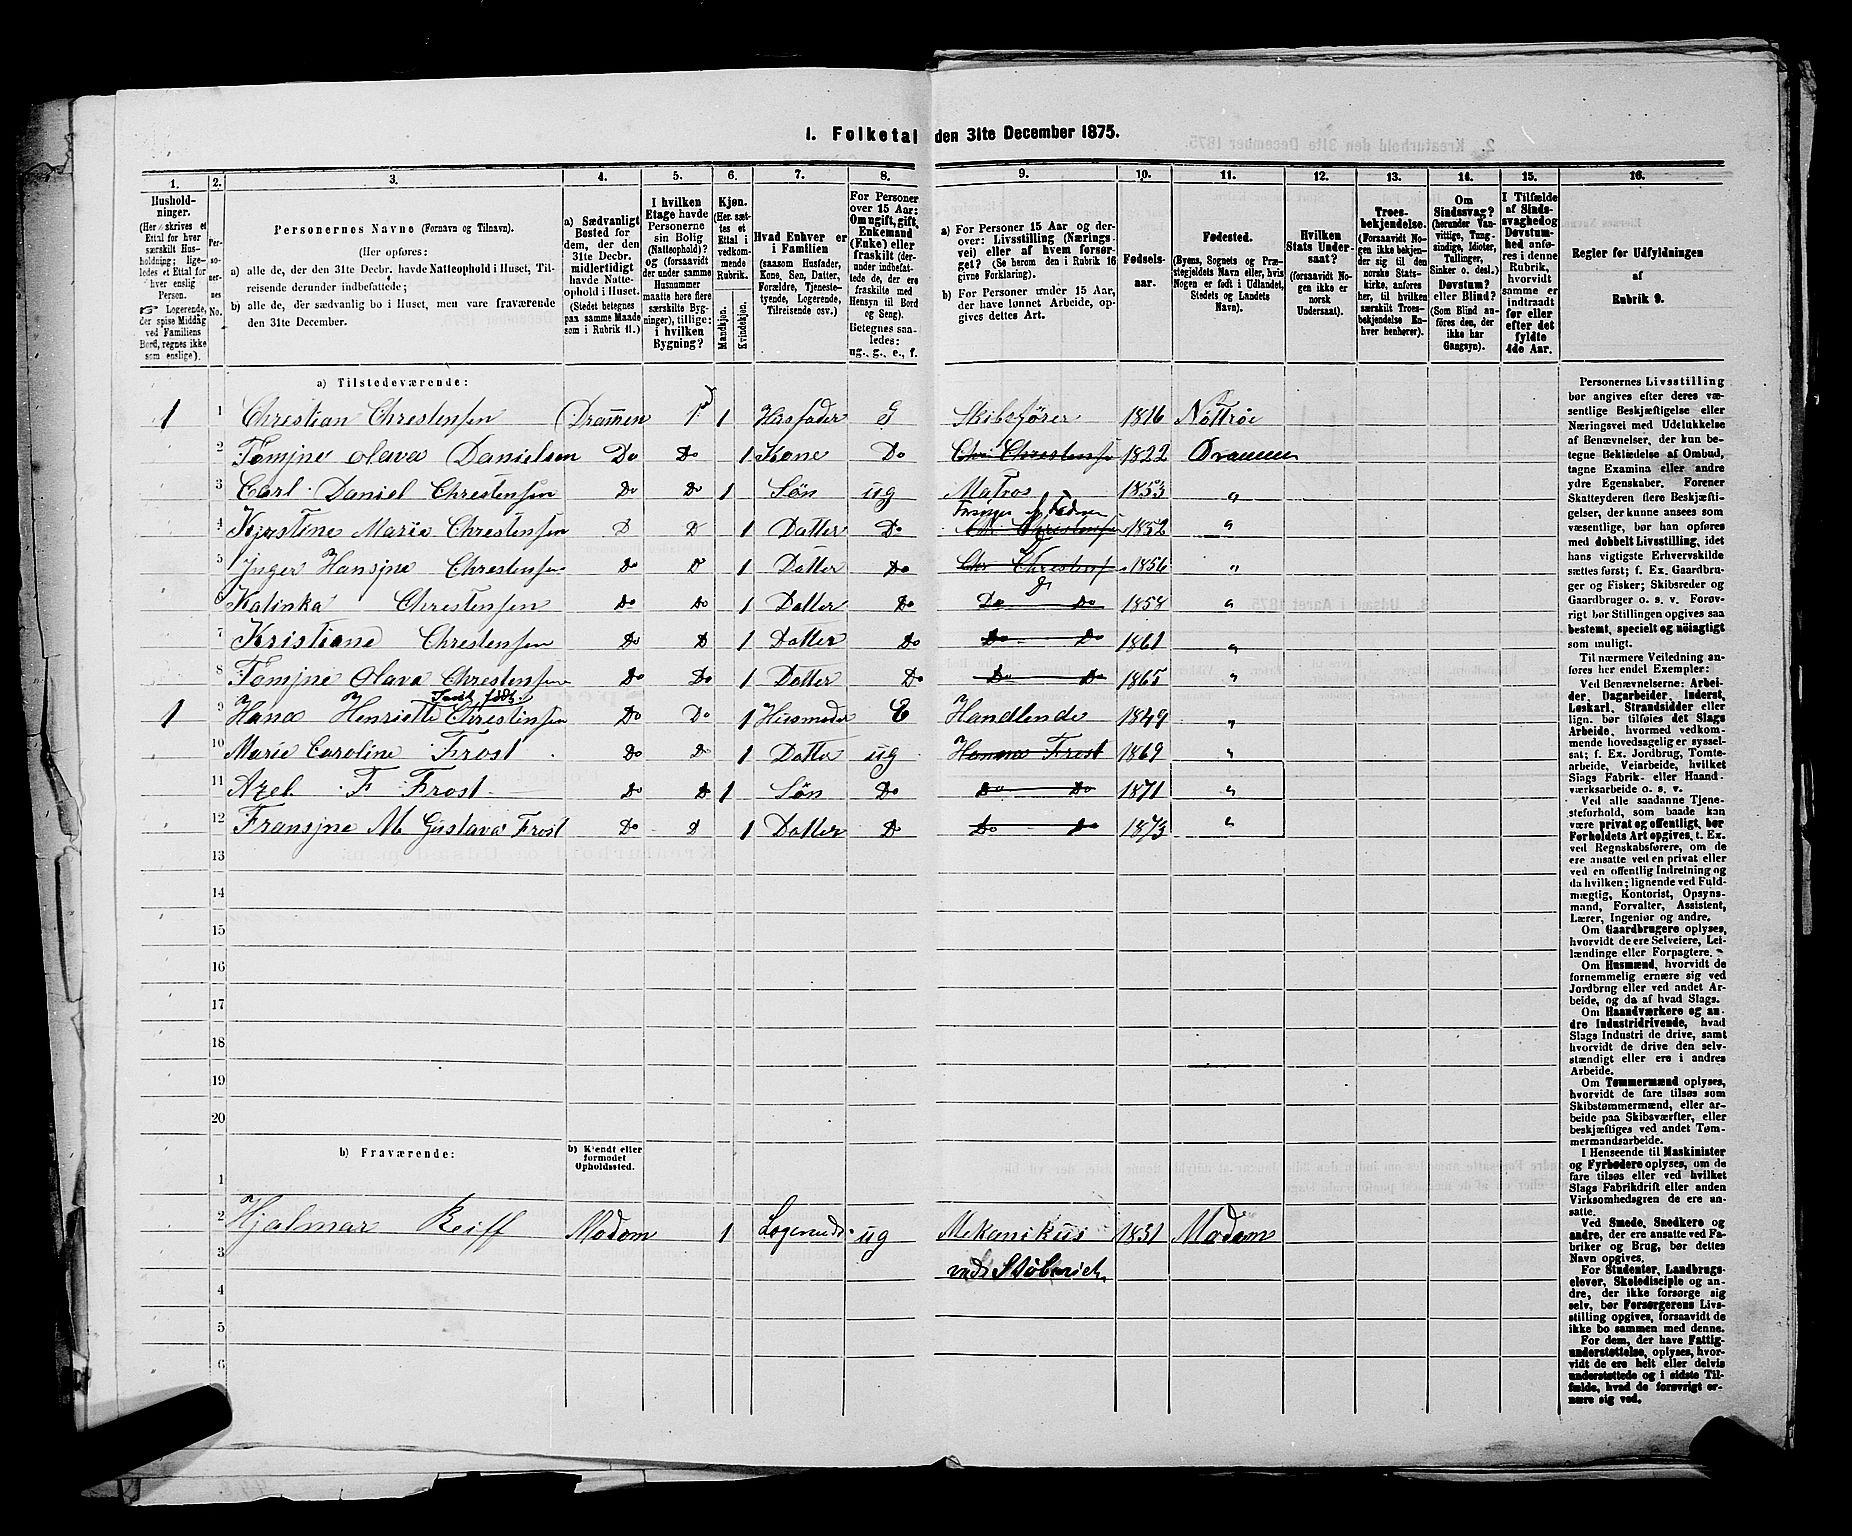 1. Folketal den 31te December 1875.
1. 2. 3. 4. 5. 6. 7. 8. 9. 10. 11. 12. 13. 14. 15. 16.
Husholdninger. (Her skrives et Ettal for hver særskilt Husholdning; ligeledes et Ettal for hver enslig Person. Logerende, der spise Middag ved Familiens Bord, regnes ikke som enslige).
Personernes No.
Personernes Navne (Fornavn og Tilnavn).
(Her opføres:
a) alle de, der den 31te Decbr. havde Natteophold i Huset, Tilreisende derunder indbefattede;
b) alle de, der sædvanlig bo i Huset, men vare fraværende den 31te December.
a) Sædvanligt Bosted for dem, der den 31te Decbr. midlertidigt havde Natteophold i Huset. (Stedet betegnes paa samme Maade som i Rubrik 11.)
I hvilken Etage havde Personerne sin Bolig (Natteophold)? og (forsaavidt der under samme Husnummer maatte høre flere særskilte Bygninger), tillige: i hvilken Bygning?
Kjøn. (Her sættes et Ettal i vedkommende Rubrik. Mandkjøn. Kvindekjøn.
Hvad Enhver er i Familien (saasom Husfader, Kone, Søn, Datter, Forældre, Tjenestetyende, Logerende, Tilreisende osv.)
For Personer over 15 Aar: Om ugift, gift, Enkemand (Enke) eller fraskilt (derunder indbefattede de, der ere fraskilte med Hensyn til Bord og Seng). Betegnes saaledes: ug., g., e., f.
a) For Personer 15 Aar og derover: Livsstilling (Næringsvei) eller af hvem forsørget? (Se herom den i Rubrik 16 givne Forklaring).
b) For Personer under 15 Aar, der have lønnet Arbeide, opgives dettes Art.
Fødselsaar.
Fødested. (Byens, Sognets og Præstegjeldets Navn eller, hvis Nogen er født i Udlandet, Stedets og Landets Navn).
Hvilken Stats Undersaat? (forsaavidt Nogen ikke er norsk Undersaat).
Troesbekjendelse. (Forsaavidt Nogen ikke bekjender sig til den norske Statskirke, anføres her, til hvilken særskilt Troesbekjendelse Enhver henhører).
Om Sindssvag? (herunder Vanvittige, Tungsindige, Idioter, Tullinger, Sinker o. desl.) Døvstum? eller Blind? (Som Blind anføres den, der ikke har Gangsyn).
I Tilfælde af Sindssvaghed og Døvstumhed anføres i denne Rubrik, hvorvidt samme er indtraadt før eller efter det fyldte 4de Aar.
Regler for Udfyldningen af Rubrik 9.
a) Tilstedeværende:
1 1 Christian Chrestensen Drammen 1 Husfader G Skibsfører 1816 Nøttrøe
2 Tomjne Olava Danielsen Do Do 1 Kone Do Chr Chrestensen 1822 Drammen
3 Carl Daniel Chrestensen Do Do 1 Søn ug Matros 1853 "
4 Kjerstine Marie Chrestensen D D 1 Datter Do Forsørges af Faderen Chr Chrestensen 1852 "
5 Inger Hansjne Chrestensen Do D 1 Datter Do Chr Chrestens 1856 "
6 Kalinka Chrestensen Do Do 1 Datter Do Do Do 1858 "
7 Kristiane Chrestensen Do D 1 Datter Do Do Do 1861 "
8 Tomjne Olava Chrestensen Do Do 1 Datter Do Do Do 1865 "
1 9 Hana Henriette Frost født Chrestensen Do Do 1 Husmoder E Handlende 1849 "
10 Marie Caroline Frost Do Do 1 Datter ug Hanna Frost 1869 "
11 Axel F Frost Do D 1 Søn Do Do Do 1871 "
12 Fransjne M Gustava Frost Do D 1 Datter D Do Do 1873 "
13
14
15
16
17
18
19
20
b) Fraværende: b) Kjendt eller formodet Opholdssted.
1
2 Hjalmar Reiff Modom 1 Logerende ug Mekanikus 1851 Modum
3 ved Støberiet
4
5
6
Personernes Livsstilling
bør angives efter deres væ-
sentlige Beskjæftigelse eller
Næringsvei med Udelukkelse
af Benævnelser, der kun be-
tegne Beklædelse af Ombud,
tagne Examina eller andre
ydre Egenskaber. Forener
Skatteyderen flere Beskjæfti-
gelser, der kunne ansees som
væsentlige, bør han opføres
med dobbelt Livsstilling, idet
hans vigtigste Erhvervskilde
sættes først; f. Ex. Gaardbru-
ger og Fisker; Skibsreder og
Gaardbruger o. s. v. Forøv-
rigt bør Stillingen opgives saa
bestemt, specielt og nöiagtigt
som muligt.
Til nærmere Veiledning an-
føres her endel Exempler:
Ved Benævnelserne: Arbei-
der, Dagarbeider, Inderst,
Løskarl, Strandsidder eller
lign. bør tilføies det Slags
Arbeide, hvormed vedkom-
mende hovedsagelig er syssel-
sat; f. Ex. Jordbrug, Tomte-
arbeide, Veiarbeide, hvilket
Slags Fabrik- eller Haand-
værksarbeide o. s. v.
Ved alle saadanne Tjene-
steforhold, som baade kan
være privat og offentligt, bør
Forholdets Art opgives, t. Ex.
ved Regnskabsførere, om de
ere ansatte ved en privat eller
ved en offentlig Indretning og
da hvilken; lignende ved Fuld-
mægtig, Kontorist, Opsyns-
mand, Forvalter, Assistent,
Lærer, Ingeniør og andre.
Om Gaardbrugere oplyses,
hvorvidt de ere Selveiere, Lei-
lændinge eller Forpagtere.
Om Husmænd, hvorvidt de
fornemmelig ernære sig ved
Jordbrug eller ved andet Ar-
beide, og da af hvad Slags.
Om Haandværkere og an-
dre Industridrivende, hvad
Slags Industri de drive, samt
hvorvidt de drive den selv-
stændigt eller ere i andres
Arbeide.
Om Tømmermænd oplyses,
hvorvidt de fare tilsøs som
Skibstømmermænd, eller ar-
beide paa Skibsværfter, eller
beskjæftiges ved andet Tøm-
mermandsarbeide.
I Henseende til Maskinister
og Fyrbødere oplyses, om de
fare tilsøs eller ved hvilket
Slags Fabrikdrift eller anden
Virksomhedsgren de ere an-
satte.
Ved Smede, Snedkere og
andre, der ere ansatte ved Fa-
briker og Brug, bør dettes
Navn opgives.
For Studenter, Landbrugs-
elever, Skoledisciple og an-
dre, der ikke forsørge sig
selv, bør Forsørgerens Livs-
stilling opgives, forsaavidt de
ikke bo sammen med denne.
For dem, der have Fattig-
understøttelse, oplyses, hvor-
vidt de ere helt eller delvis
understøttede og i sidste Til-
fælde, hvad de forøvrigt er-
nære sig ved.